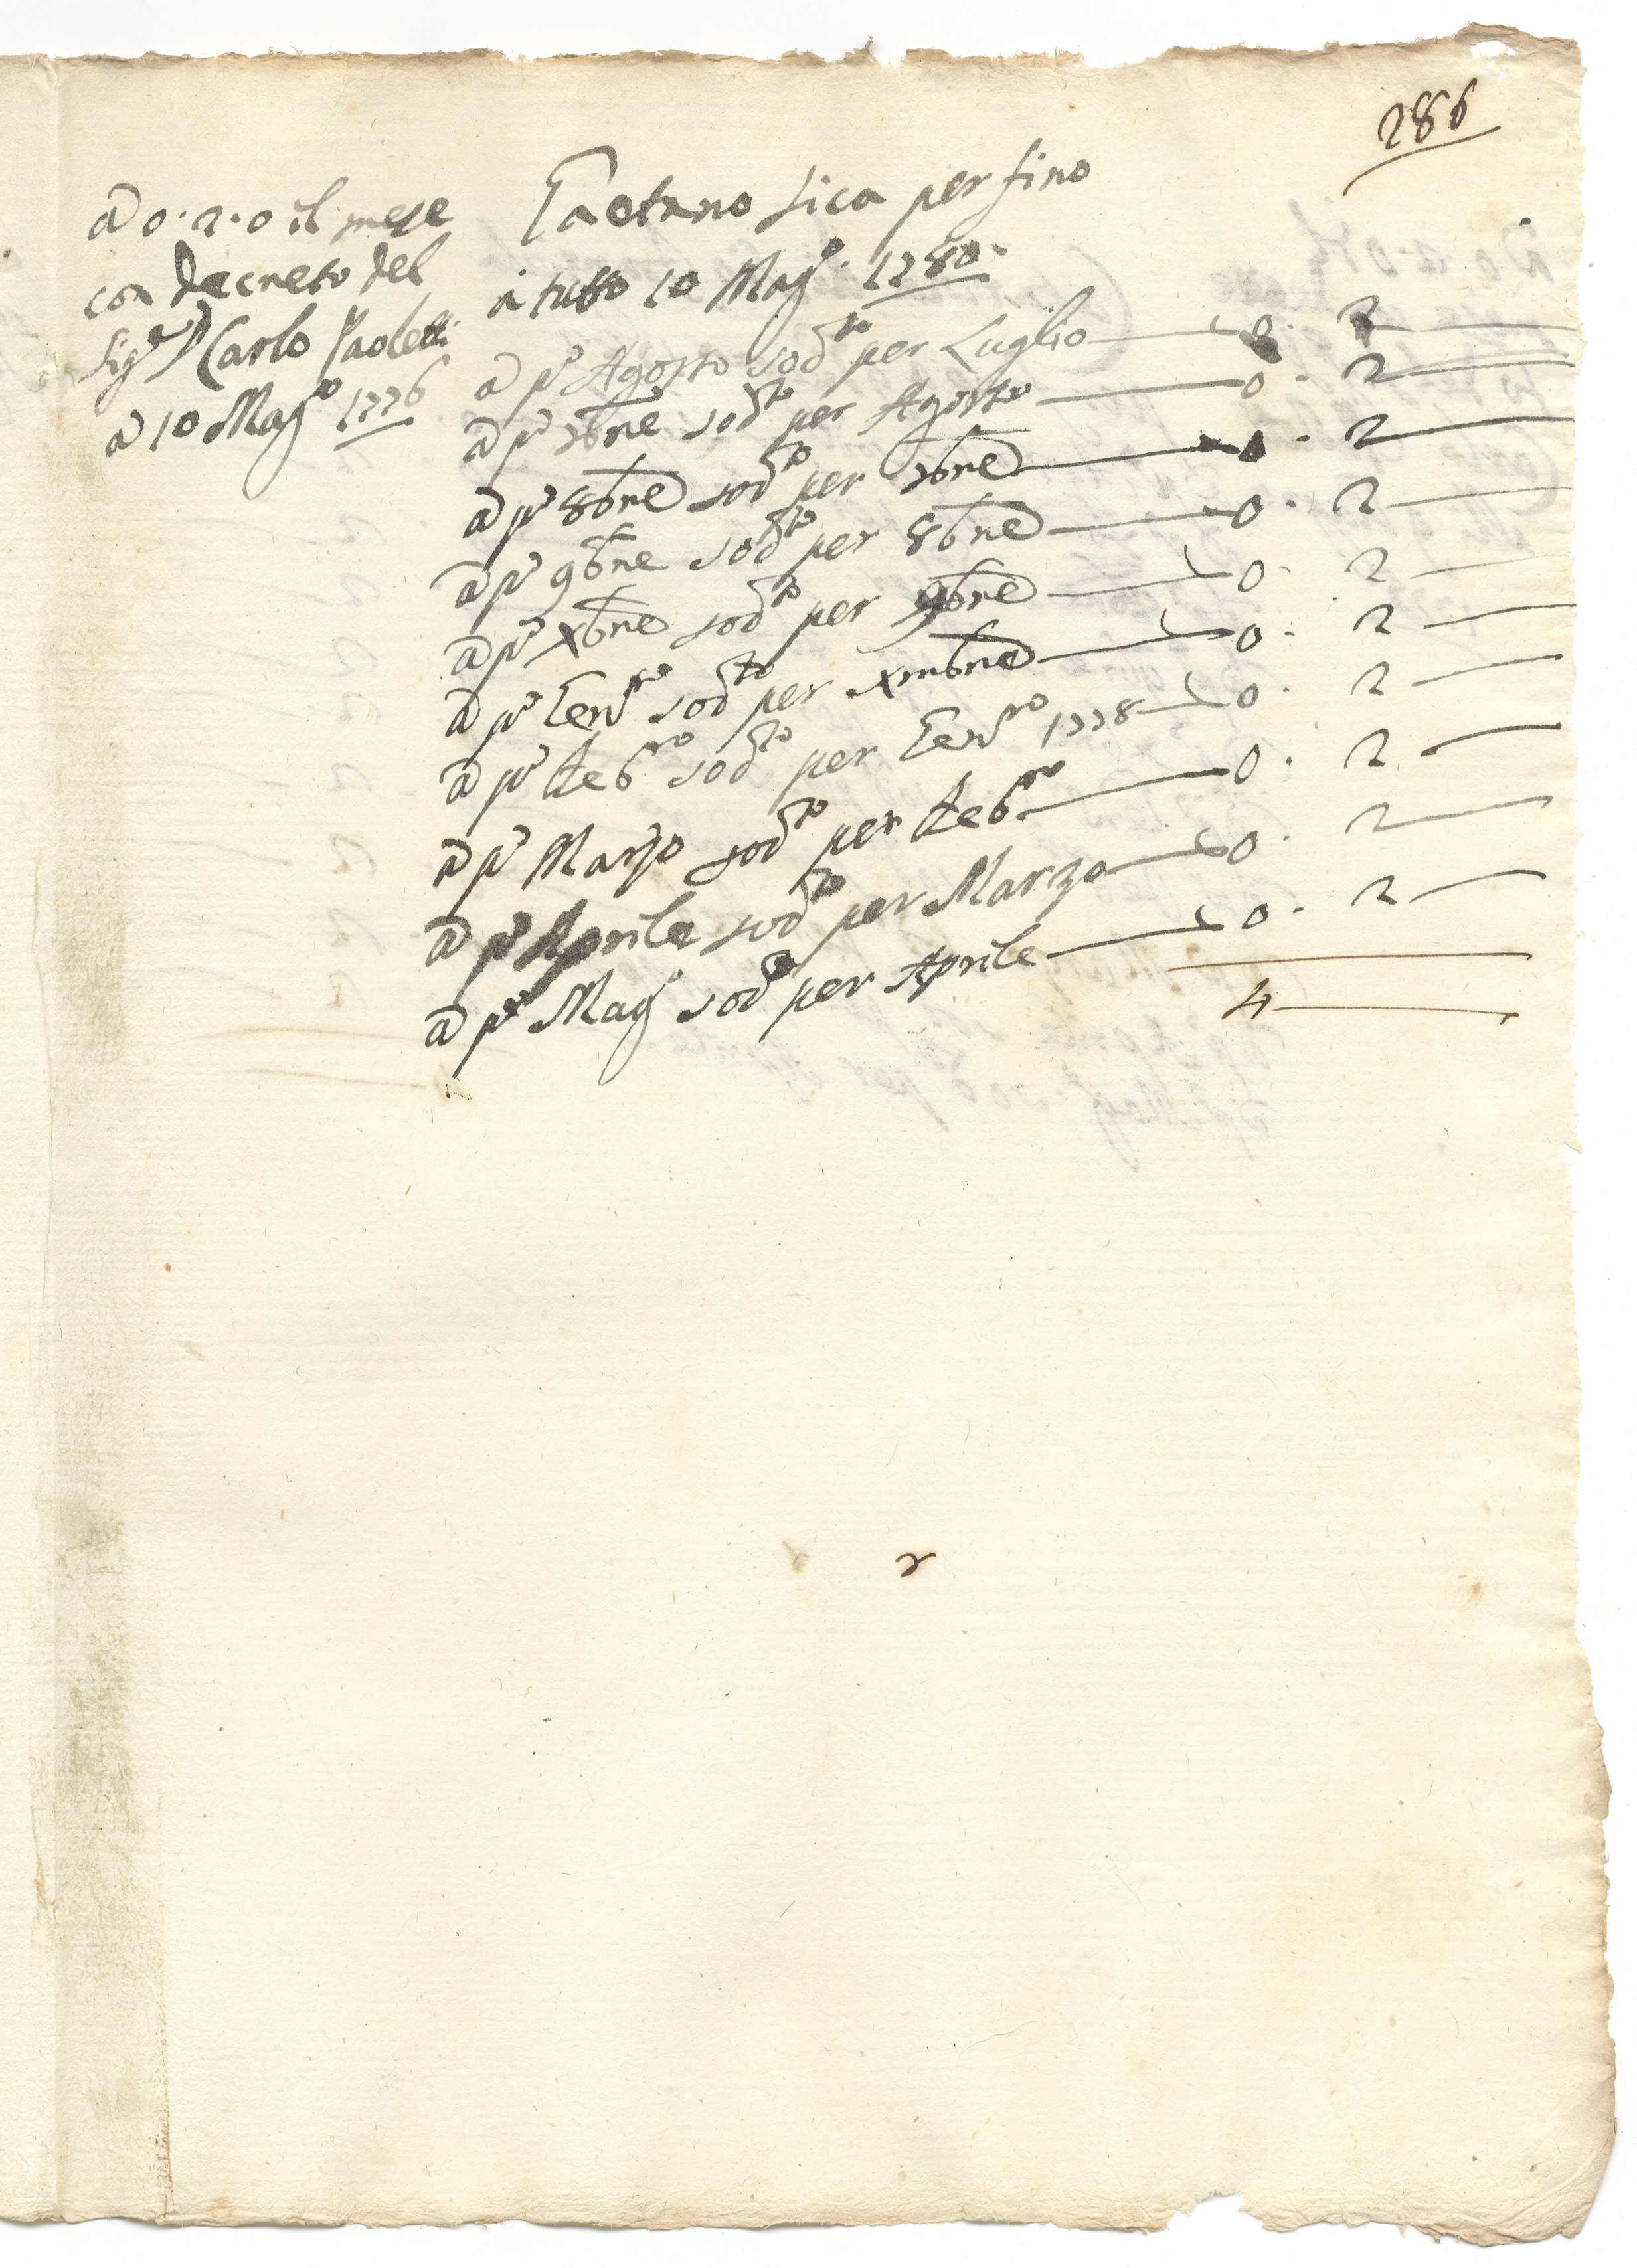 286
à 0.2.0 il mese
con decreto del
Sigr D Carlo Paoletti
à 10 Mago 1776
Gaetano Sica per fino
à tutto 10 Mago. 1780.
à po Agosto sodto per Luglio 0. 2
à po 7bre sodto per Agosto 0. 2
à po 8bre sodto per 7bre 0. 2
à po 9bre sodto per 8bre 0. 2
à po xbre sodto per 9bre 0. 2
à po Genro sodto per xmbre 0. 2
à po Febro sodto per Genro 1778 0. 2
à po Marzo sodto per Febro 0. 2
à po Aprile sodto per Marzo 0. 2
à po Mago sodto per Aprile 0. 2
4